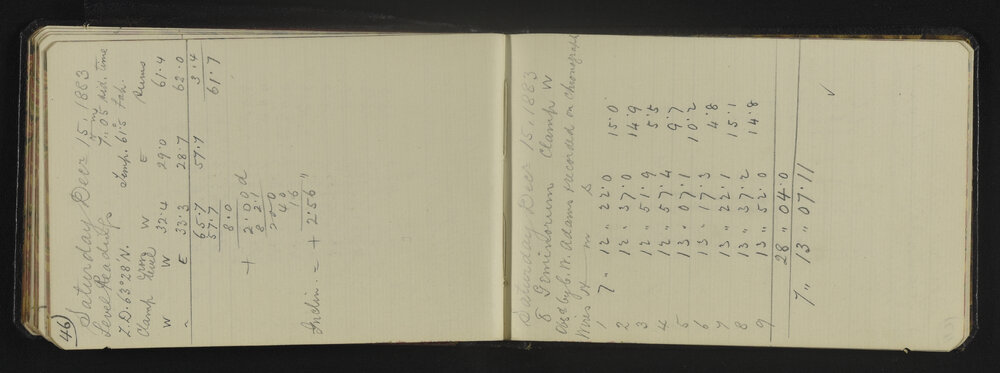 46)
Saturday Decr 15, 1883
Level Readings 7h.05m sid. time
Z.D. 63°28' N. Temp. 61°.5 Fah.
Clamp Level W E Sums
W W 32.4 29.0 61.4
" E 33.3 28.7 62.0
65.7 57.7 3.4
57.7 61.7
8.0
+ 2.0 9 d
8 2.1
2 0 0
4 0
1 6
Inclin. = + 2.56"
Saturday Decr 15, 1883
δ Geminorum Clamp W
Obsd by C. W. Adams & recorded on chronograph
Wires H m s
1 7 " 12 " 22.0 15.0
2 12 " 37.0 14.9
3 12 " 51.9 5.5
4 12 " 57.4 9.7
5 13 " 07.1 10.2
6 13 " 17.3 4.8
7 13 " 22.1 15.1
8 13 " 37.2 14.8
9 13 " 52.0
28 " 04.0
7 " 13 " 07.11
✓